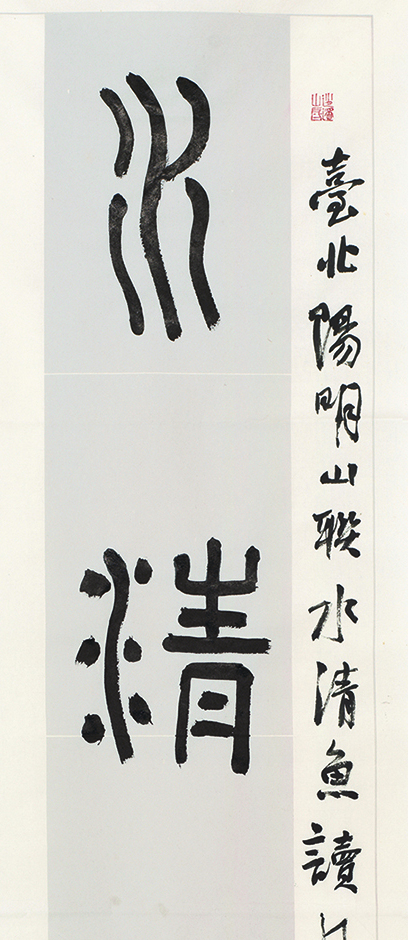 臺北陽明山聯水清魚讀
水清